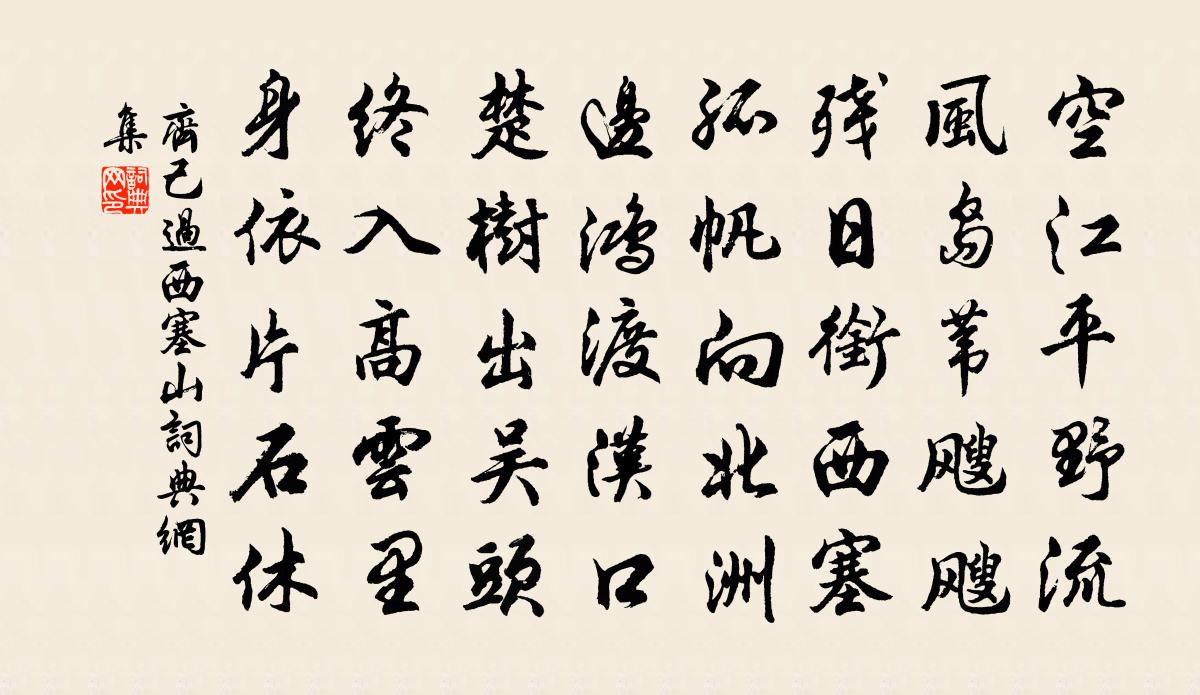 空江平野流
風岛苇飕飕
残日衔西塞
孤帆向北洲
邊鴻渡漢口
楚樹出吴頭
终入高雲里
身依片石休
齊己過西塞山詞典網
集
詞典
网印